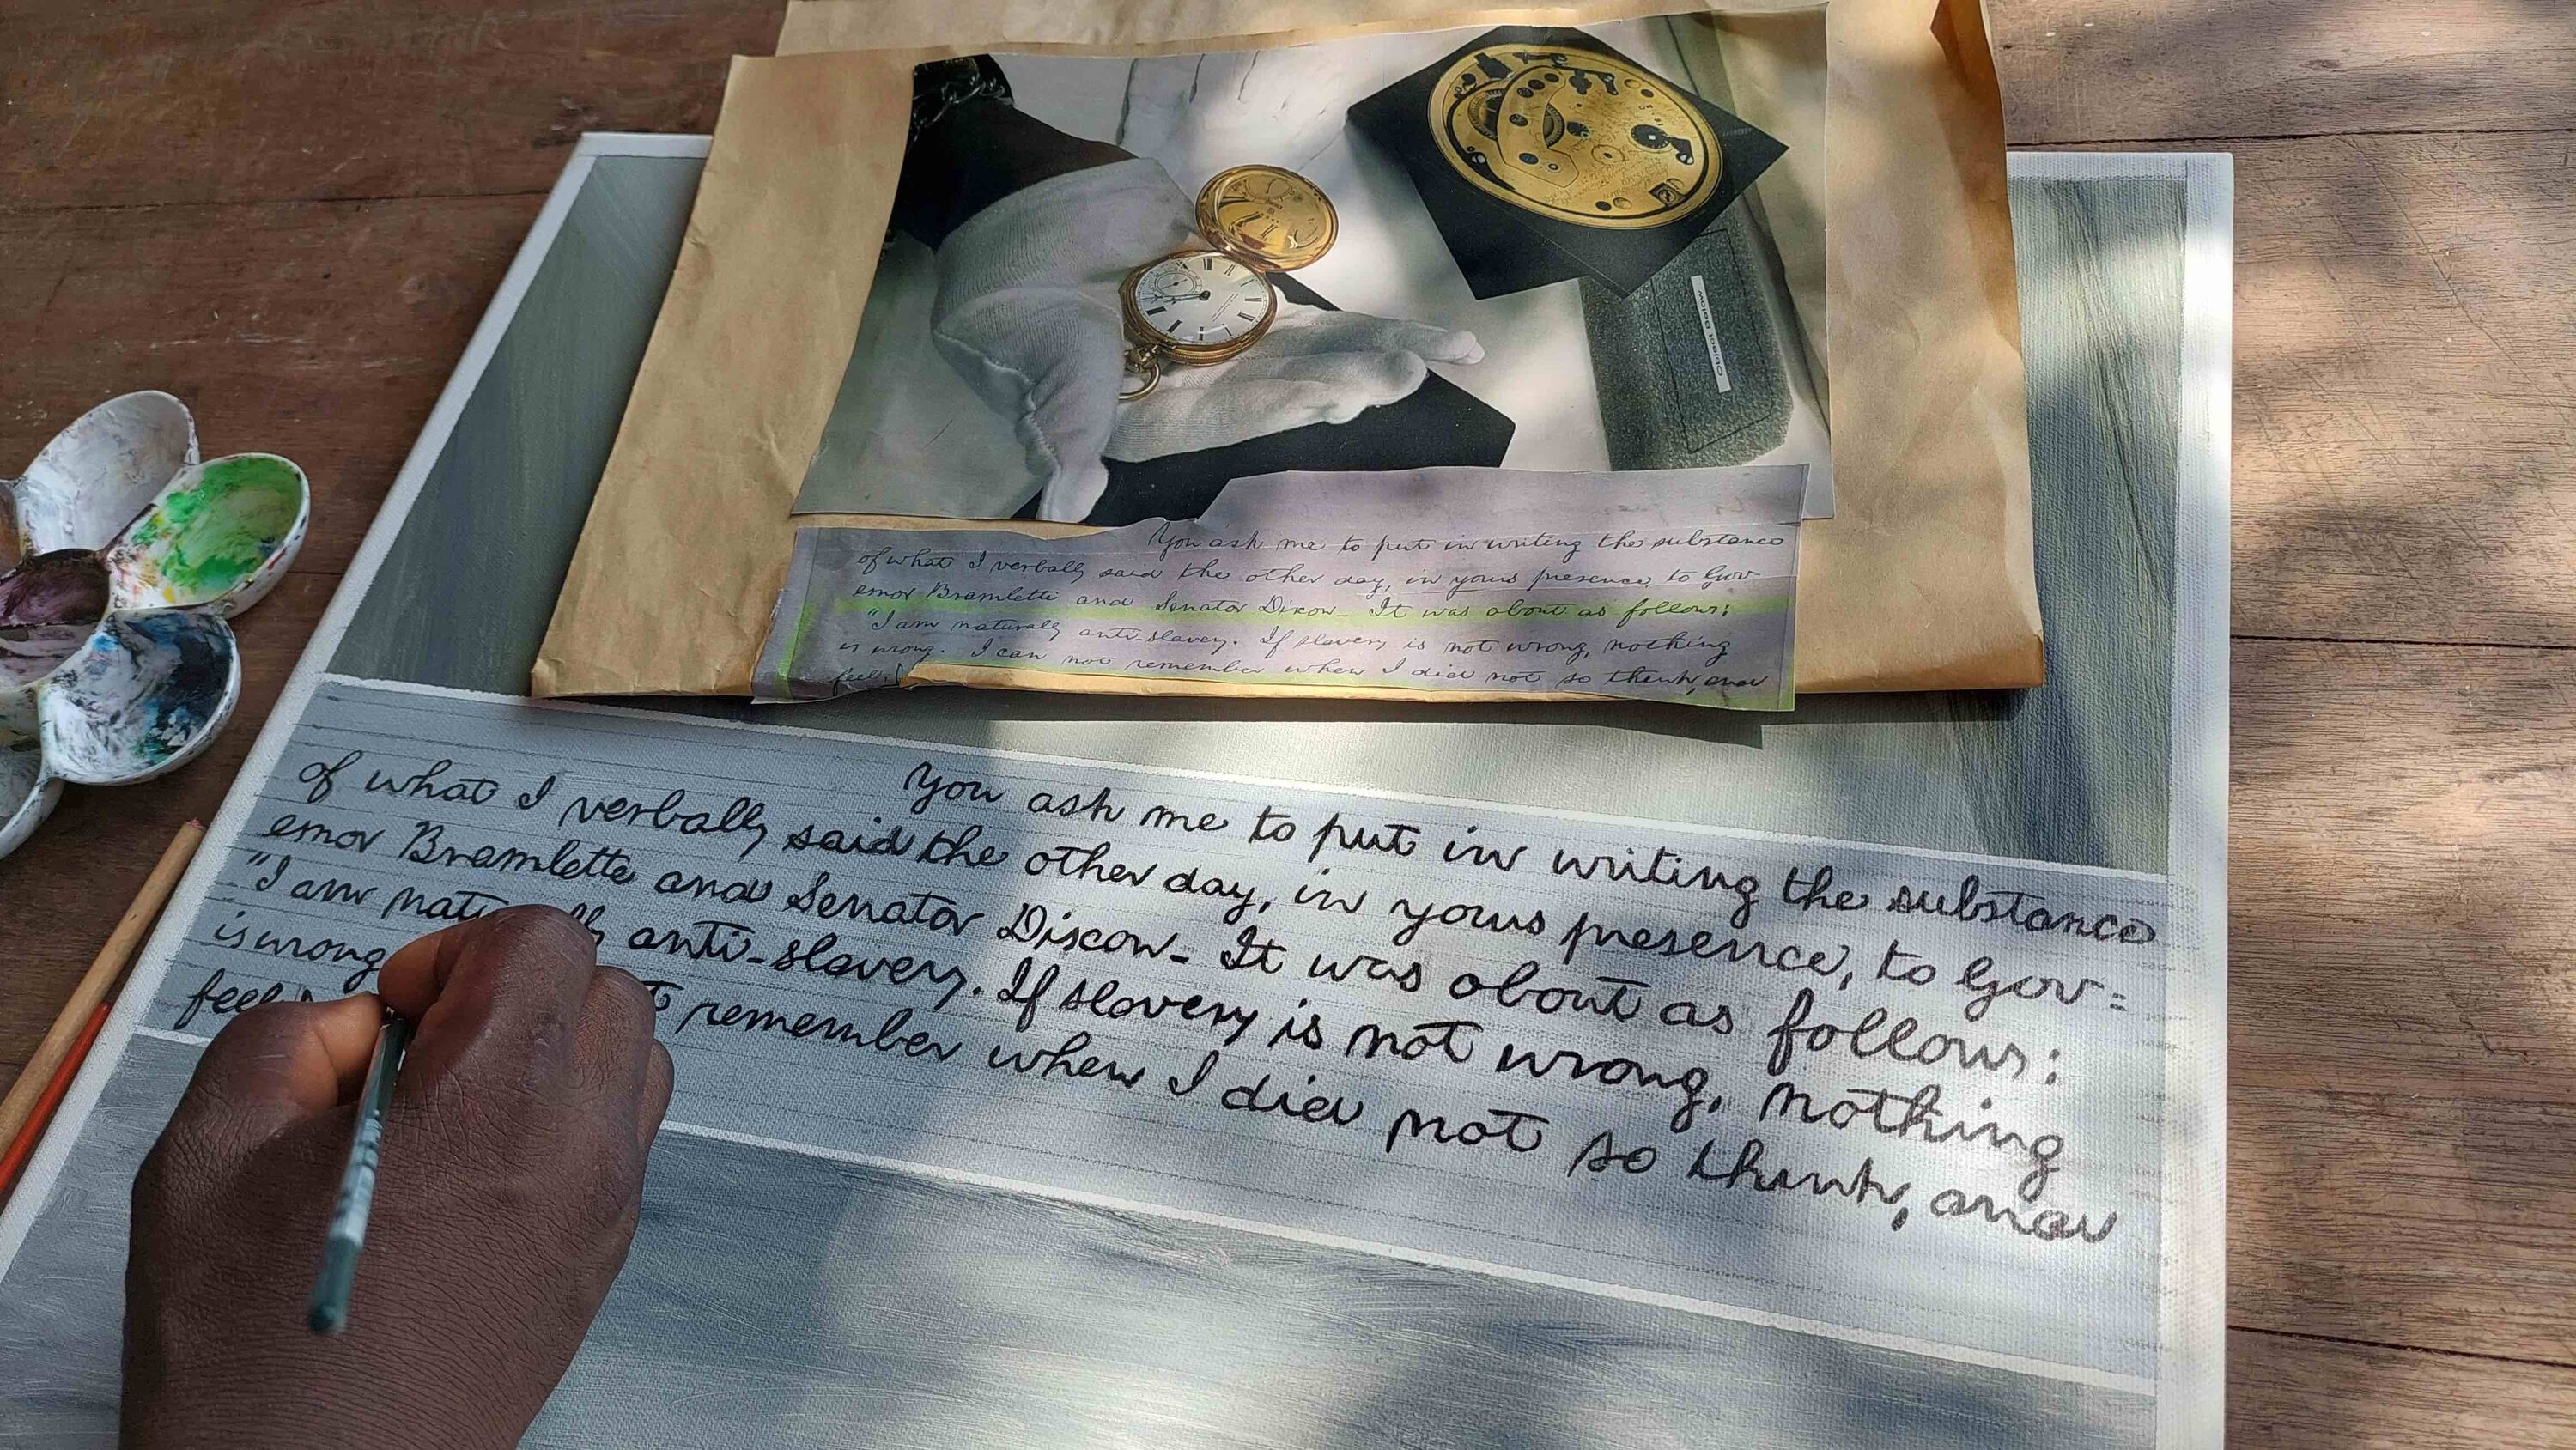 Object Below
You ask me to put in writing the substance
of what I verbally said the other day, in your presence, to Gov
ernor Bramlette and Senator Dixon_ It was about as follows:
"I am naturally anti-slavery. If slavery is not wrong, nothing
is wrong. I can not remember when I did not so think, and
feel.
You ask me to put in writing the substance
of what I verbally said the other day, in your presence, to Gov=
ernor Bramlette and Senator Dixon_ It was about as follows:
"I am anti-slavery. If slavery is not wrong, nothing
is wrong remember when I did not so think, and
feel